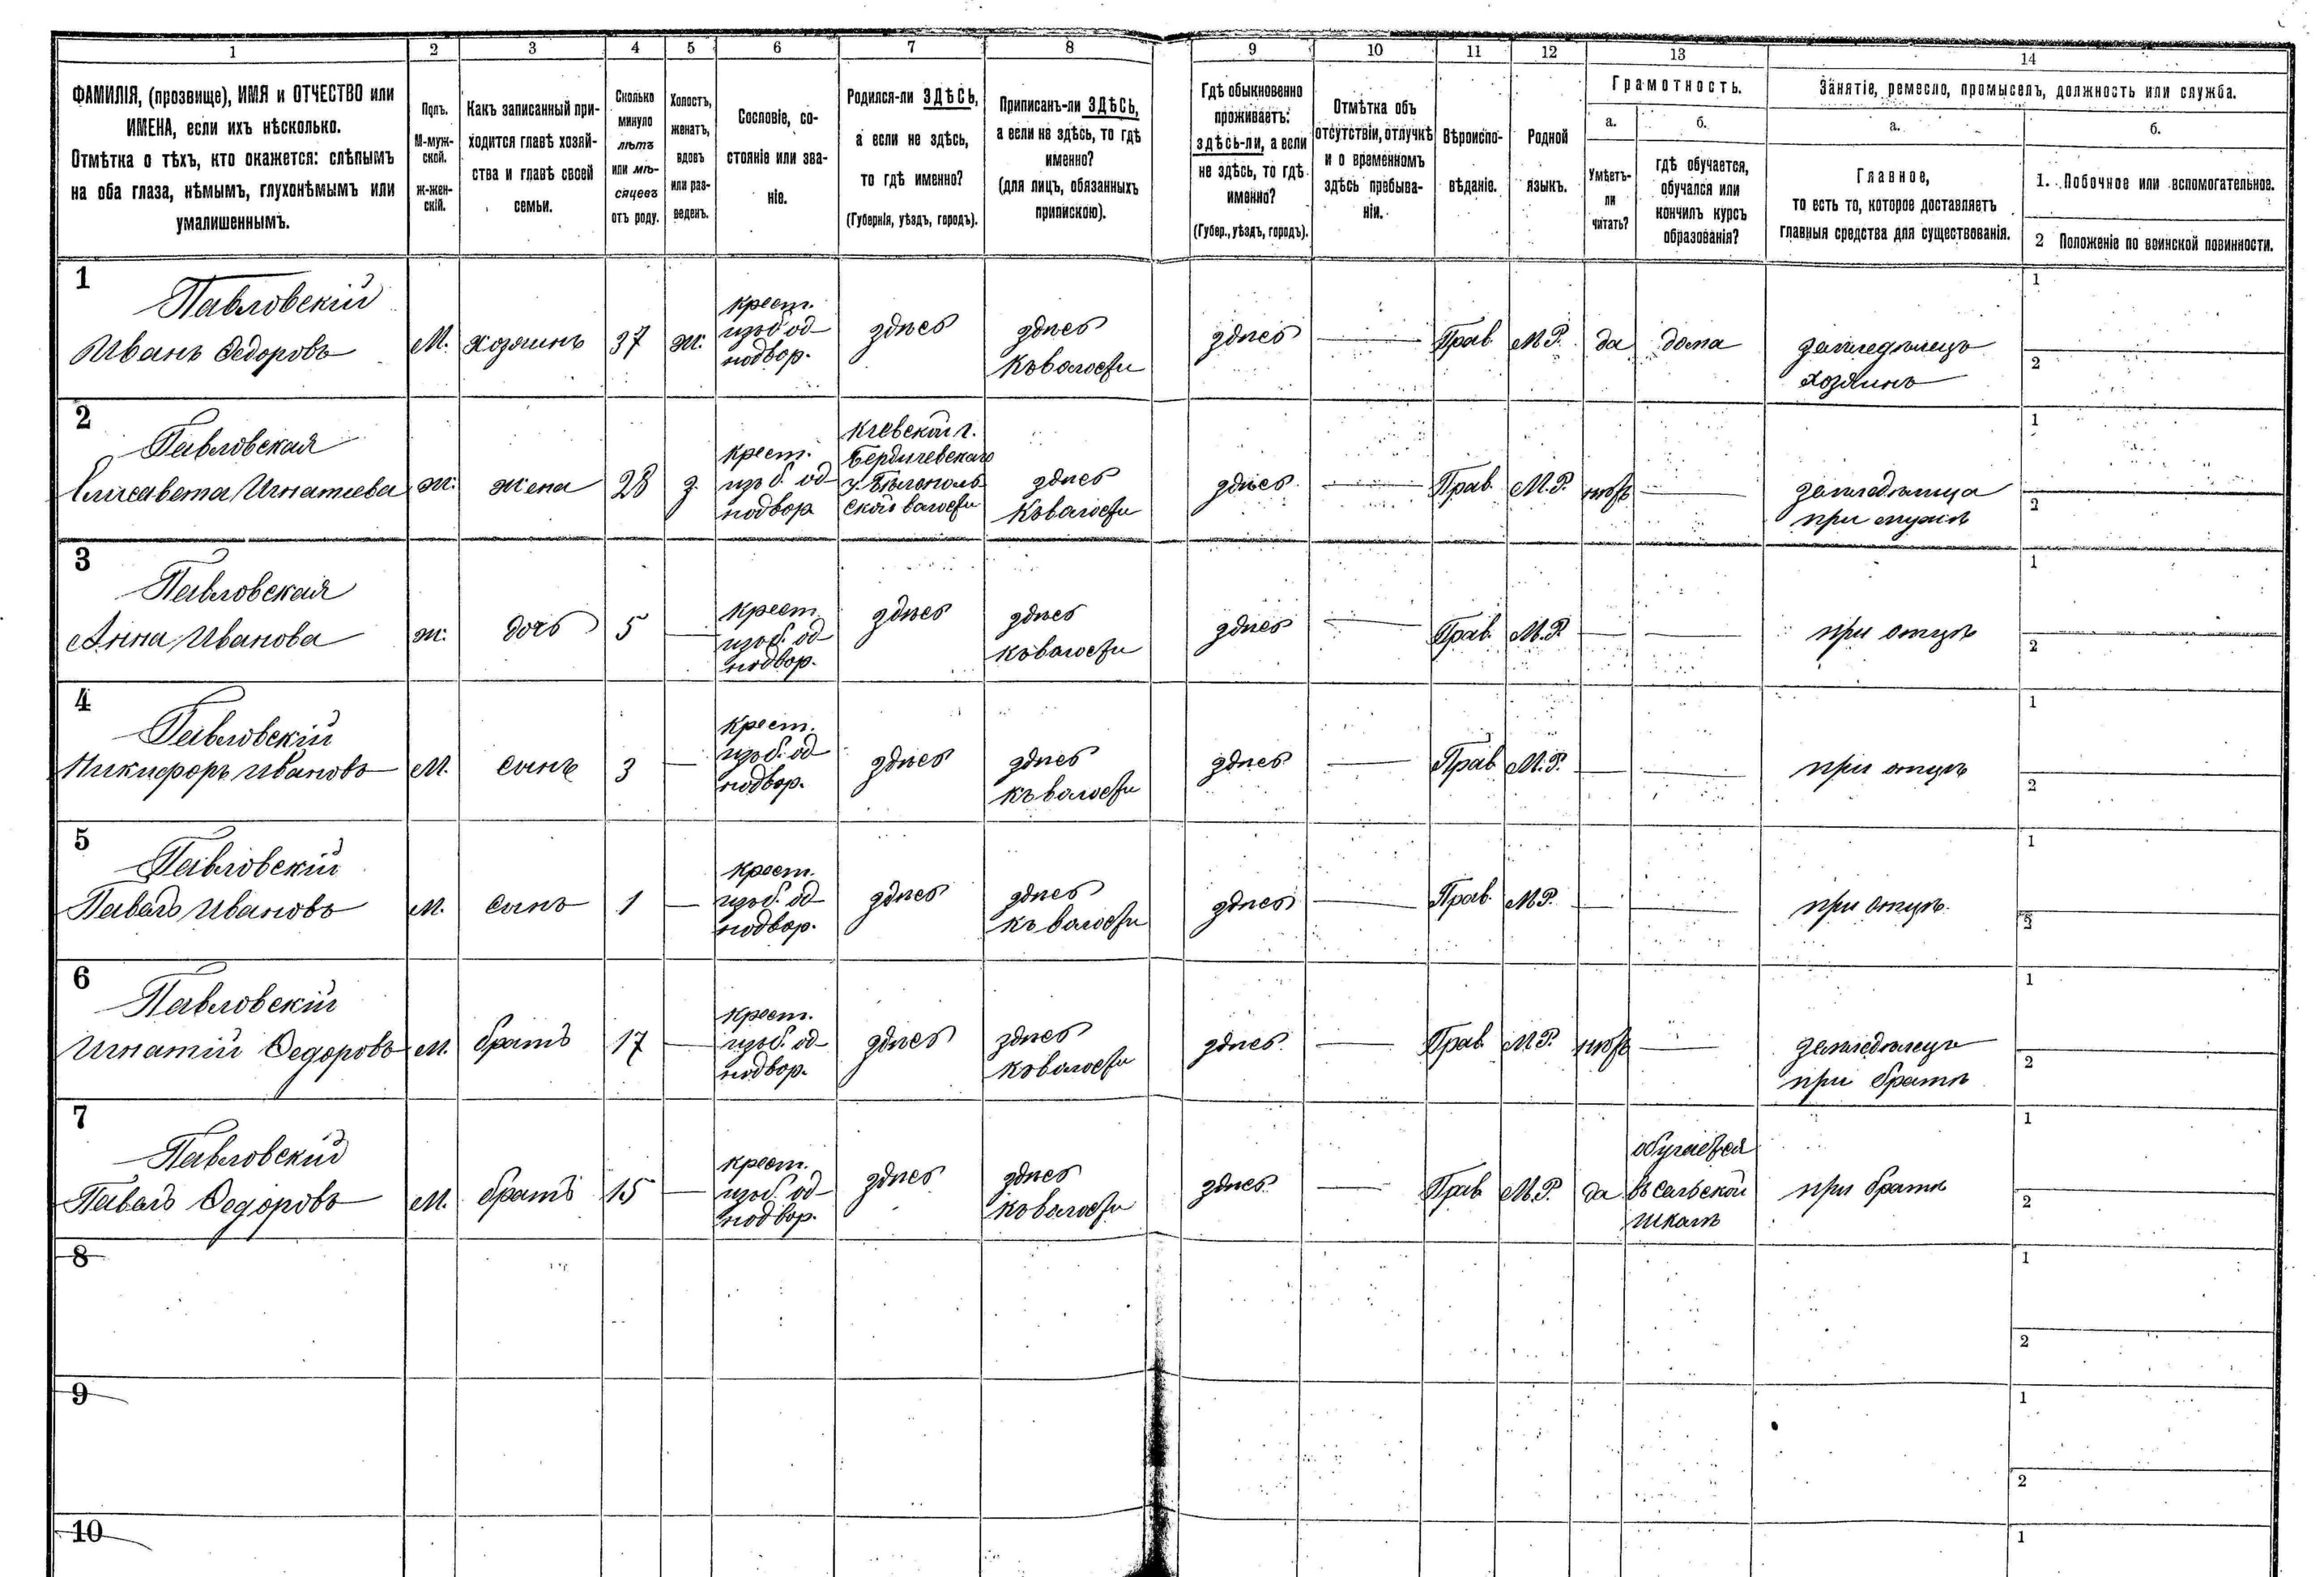 1 2 3 4 5 6 7 8 9 10 11 12 13 14
ФАМИЛІЯ, (прозвище), ИМЯ и ОТЧЕСТВО или
ИМЕНА, если ихъ нѣсколько.
Отмѣтка о тѣхъ, кто окажется: слѣпымъ
на оба глаза, нѣмымъ, глухонѣмымъ или
умалишеннымъ.
Полъ.
М-муж-
ской.
ж-жен-
скій.
Какъ записанный при-
ходится главѣ хозяй-
ства и главѣ своей
семьи.
Сколько
минуло
лѣтъ
или мѣ-
сяцевъ
отъ роду.
Холостъ,
женатъ,
вдовъ
или раз-
веденъ.
Сословіе, со-
стояніе или зва-
ніе.
Родился-ли ЗДѢСЬ,
а если не здѣсь,
то гдѣ именно?
(Губернія, уѣздъ, городъ).
Приписанъ-ли ЗДѢСЬ,
а если не здѣсь, то гдѣ
именно?
(для лицъ, обязанныхъ
припискою).
Гдѣ обыкновенно
проживаетъ:
здѣсь-ли, а если
не здѣсь, то гдѣ
именно?
(Губер., уѣздъ, городъ).
Отмѣтка объ
отсутствіи, отлучкѣ
и о временномъ
здѣсь пребыва-
ніи.
Вѣроиспо-
вѣданіе.
Родной
языкъ.
Грамотность.
а.
Умѣетъ-
ли
читать?
б.
гдѣ обучается,
обучался или
кончилъ курсъ
образованія?
Занятіе, ремесло, промыселъ, должность или служба.
а.
Главное,
то есть то, которое доставляетъ
главныя средства для существованія.
б.
1. Побочное или вспомогательное.
2 Положеніе по воинской повинности.
1
Павловскій
Иванъ Ѳедоровъ
М.
хозяинъ
37
ж.
крест.
изъ б. од
нодвор.
здѣсь
здѣсь
къ волости
здѣсь
Прав.
М.Р.
да
дома
земледѣлецъ
хозяинъ
1
2
2
Павловская
Елисавета Игнатіева
ж.
жена
28
з.
крест.
изъ б. од
нодвор
Кіевской г.
Бердичевскаго
у. Бѣлополь
ской волости
здѣсь
къ волости
здѣсь
Прав
М.Р.
нѣтъ
земледѣлица
при мужѣ
1
2
3
Павловская
Анна Иванова
ж.
дочь
5
крест
изъ б. од
нодвор.
здѣсь
здѣсь
къ волости
здѣсь
Прав.
М.Р.
при отцѣ
1
2
4
Павловскій
Никифоръ Ивановъ
М.
сынъ
3
крест.
изъ б. од
нодвор.
здѣсь
здѣсь
къ волости
здѣсь
Прав
М.Р.
при отцѣ
1
2
5
Павловскій
Павелъ Ивановъ
М.
сынъ
1
крест.
изъ б. од
нодвор.
здѣсь
здѣсь
къ волости
здѣсь
Прав.
М.Р.
при отцѣ.
1
2
6
Павловскій
Игнатій Ѳедоровъ
М.
братъ
17
крест.
изъ б. од
нодвор.
здѣсь
здѣсь
къ волости
здѣсь
Прав.
М.Р.
нѣтъ
земледѣлецъ
при братѣ
1
2
7
Павловскій
Павелъ Ѳедоровъ
М.
братъ
15
крест.
изъ б. од
нодвор.
здѣсь
здѣсь
къ волости
здѣсь
Прав
М.Р.
да
обучается
въ сельской
школѣ
при братѣ
1
2
8
1
2
9
1
2
10
1